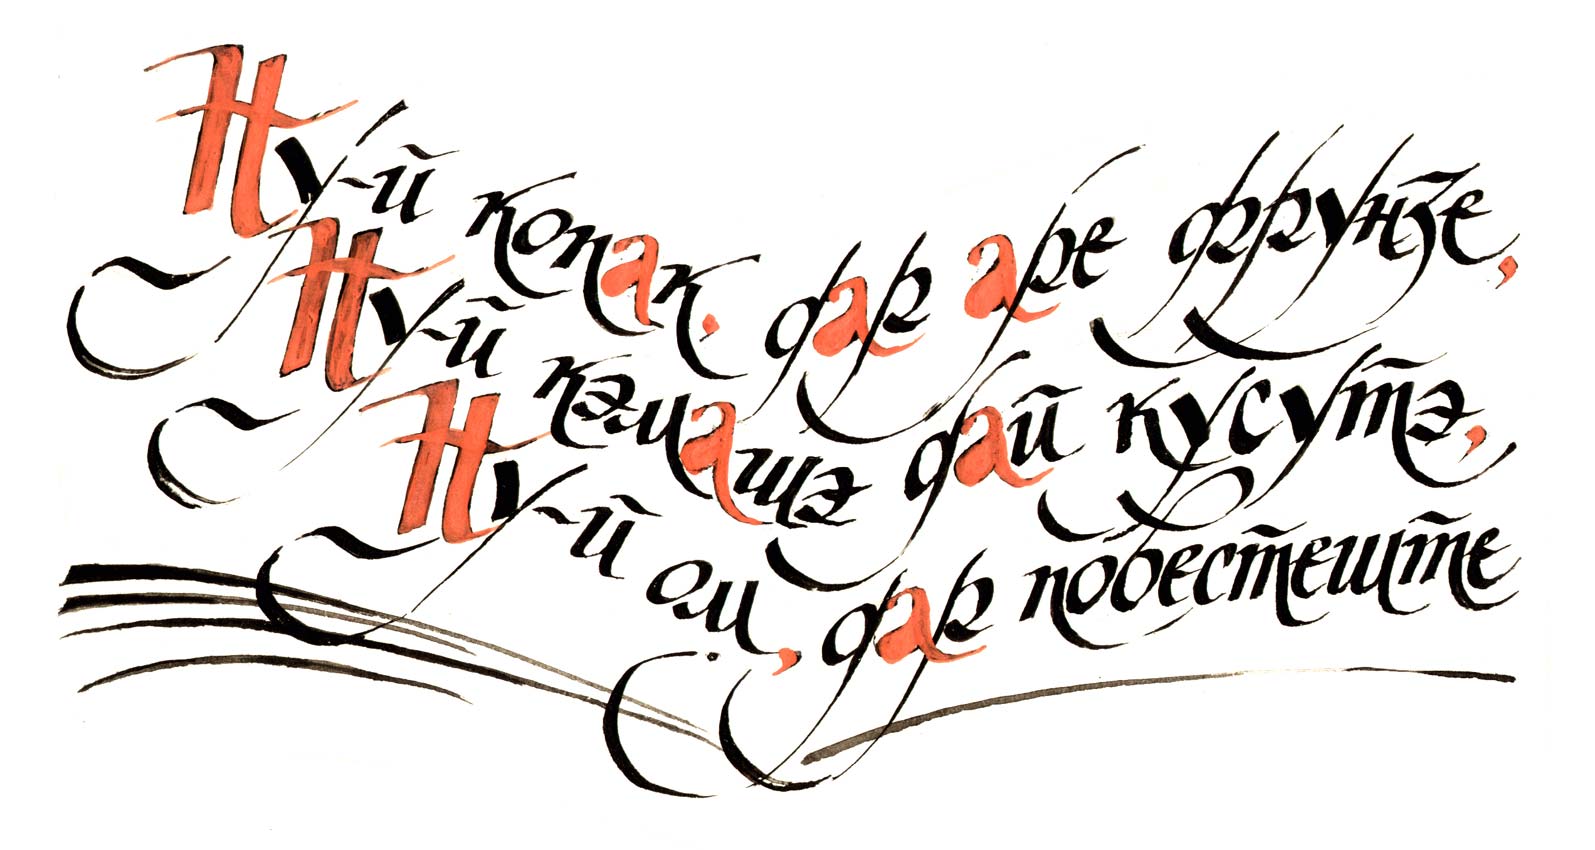 Ну-й копак, дар аре фрунзе,
Ну-й кэмашэ дай кусутэ,
Ну-й ом, дар повестеште